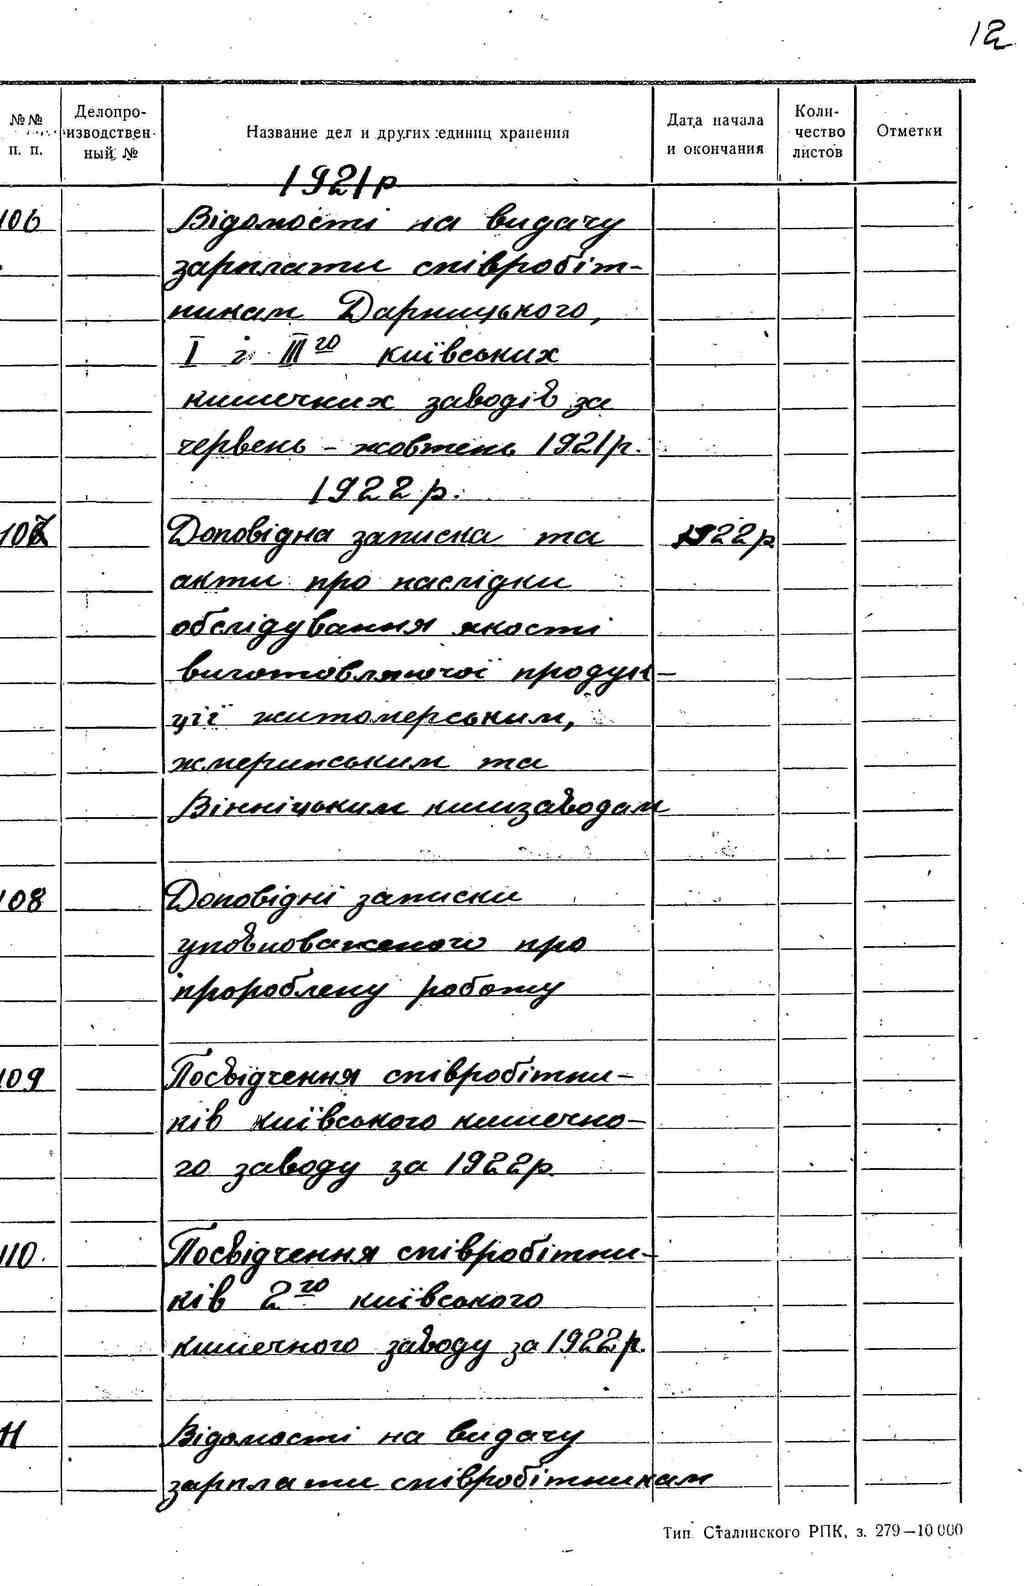 12
№№
п. п.
Делопро-
изводствен-
ный №
Название дел и других единиц хранения
Дата начала
и окончания
Коли-
чество
листов
Отметки
1921р
106 Відомості на видачу
зарплати співробіт-
никам Дарницького,
I і III го київських
кишечних заводів за
червень - жовтень 1921р.
1922 р.
107 Доповідна записка та 1922р
акти про наслідки
обслідування якості
виготовляючої продук-
ції житомерським,
жмеринським та
Вінніцьким кишзаводам
108 Доповідні записки
уповноваженого про
пророблену роботу
109 Посвідчення співробітни-
ків київського кишечно-
го заводу за 1922р.
110. Посвідчення співробітни-
ків 2 го київського
кишечного заводу за 1922р.
11 Відомості на видачу
зарплати співробітникам
Тип. Сталинского РПК, з. 279—10 000